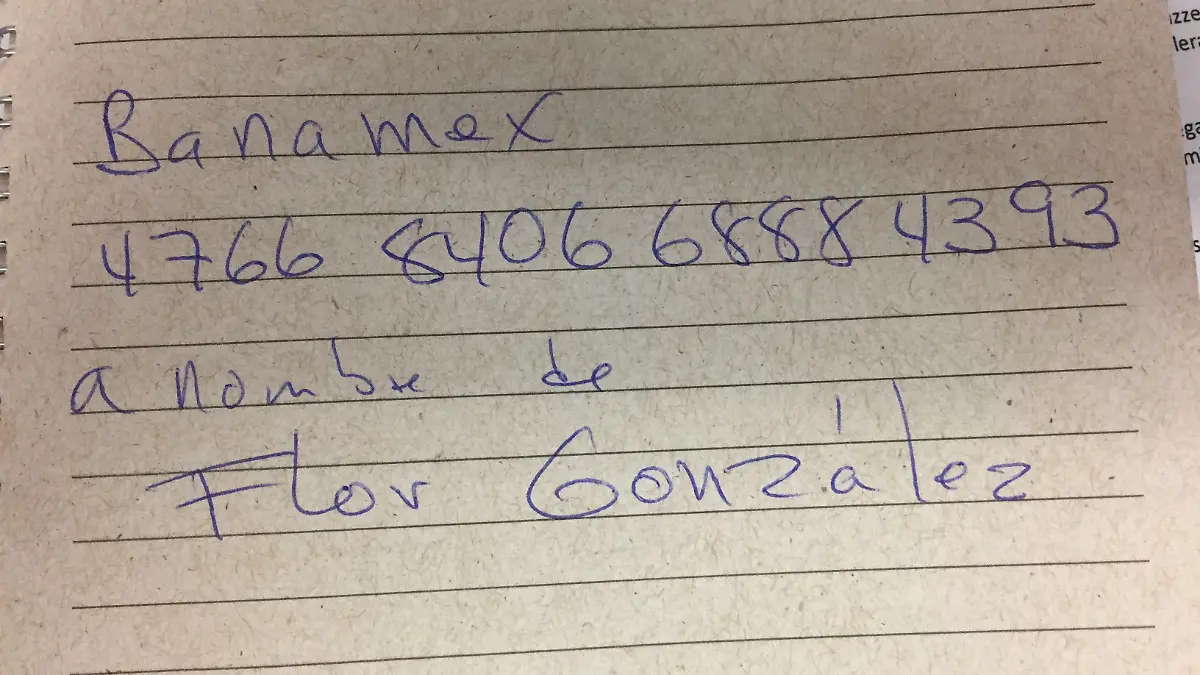 Banamex
4766 8406 6888 4393
a nombre de
Flor González